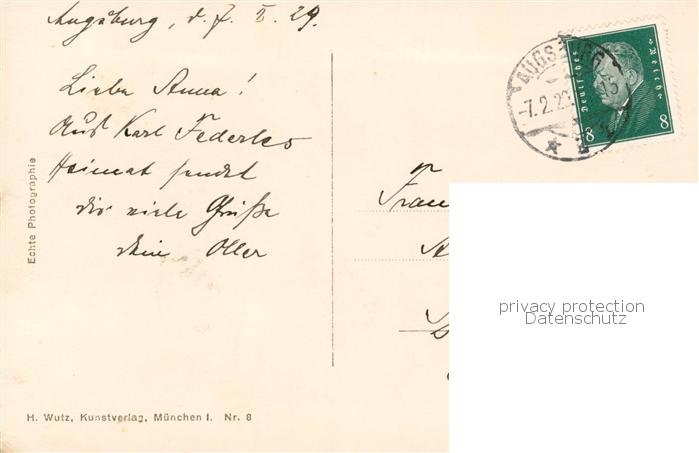 Augsburg, d. 7. II. 29.
Liebe Anna!
Aus Karl Federles
Heimat sendet
dir viele Grüße
dein Otter
Echte Photographie
H. Wutz, Kunstverlag, München I. Nr. 8
AUGSBURG
-7.2.29
2
Deutsches Reich
8 8
Frau
privacy protection
Datenschutz